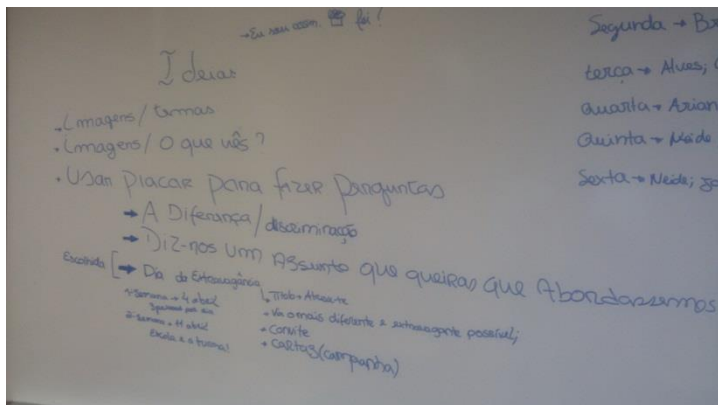 →Eu sou assim. foi!
Ideias
• Imagens/temas
• Imagens/O que vês?
• Usar placar para fazer perguntas
→ A Diferença/discriminação
→ Diz-nos um Assunto que queiras que Abordassemos
Escolhida [→ Dia da Extravagância
1ª Semana → 4 abril
2ª Semana → 11 abril
Escola e a turma!
• Vir o mais diferente e extravagante possível;
• Convite
• Cartaz (campanha)
Segunda →
terça → Alves;
Quarta →
Quinta → Neide
Sexta → Neide;